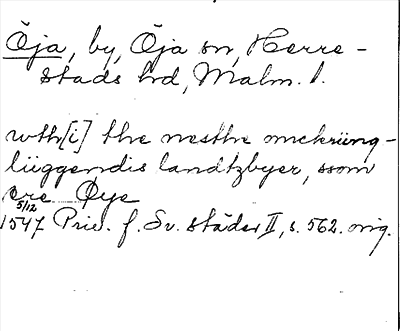 Öja, by, Öja sn, Herre-
stads hd, Malm. l.
wth[i] the nesthe omckriing-
liiggendis landtzbyer, ssom
ere Øye
5/12
1547 Priv. f. Sv. städer II, s. 562. orig.